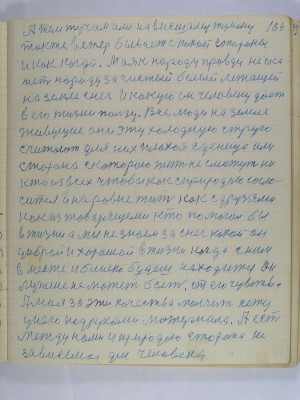 А тем тучам или нависшему туману 189
тоже ветер бывает с какой стороны
и как когда. Маяк народу правду не ска
жет народу за чистый белый лежащий
на земле снег и какую он человеку дает
в его жизни пользу. Все люди на земле
живущие они эту холодную струю
считают для них плохая сделица или
сторона с которою жить не смогут ни
кто из всех чтобы как с природою согла
сится и наровне жить как с друзьями
как с товарищами кто помог бы
в жизни а ты не знаем за снег какой он
добрый и хороший в жизни когда с ним
в месте и близко будем находится Он
лучше не может быть от его чувства.
А мая за эти качества молчит нету
у него под руками материала. А есть
между нами и природою сторона не
зависимая для человека.